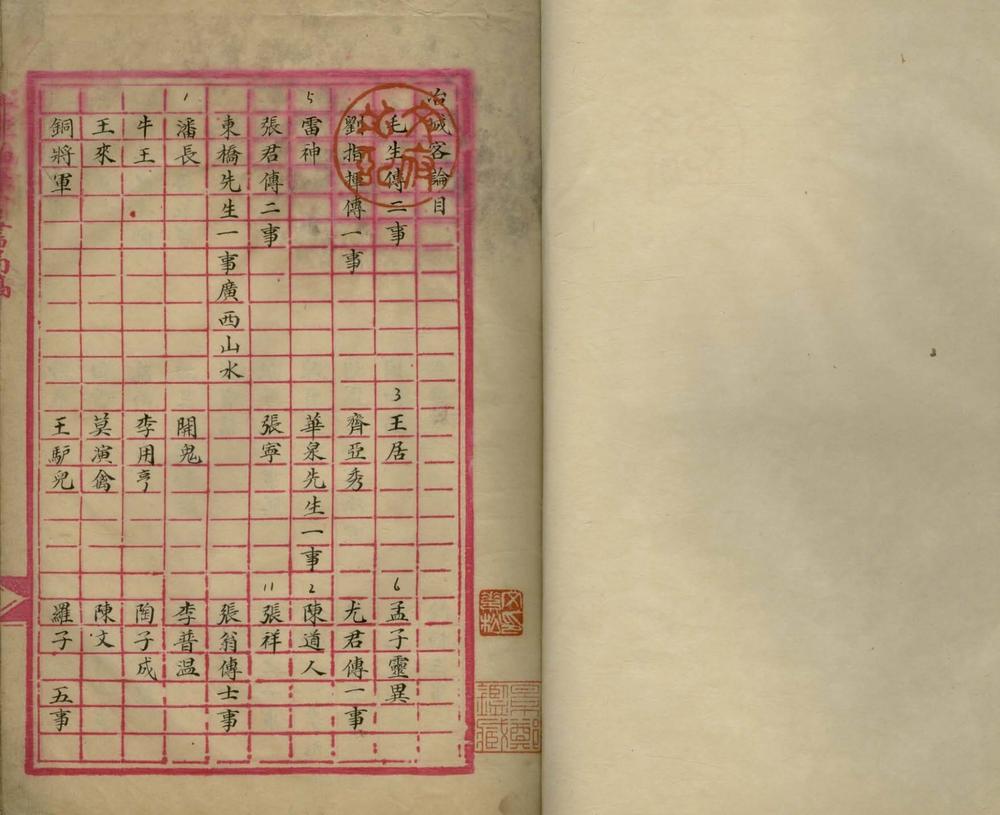 冶城客論目
毛生傳二事 王居 孟子靈異
劉指揮傳一事 齊亞秀 尤君傳一事
雷神 華泉先生一事 陳道人
張君傳二事 張寧 張祥
東橋先生一事廣西山水 張翁傳士事
潘長 開鬼 李普温
牛王 李用亨 陶子成
王來 莫演禽 陳文
銅將軍 王馿兒 羅子 五事
3 6
5 2
11
1